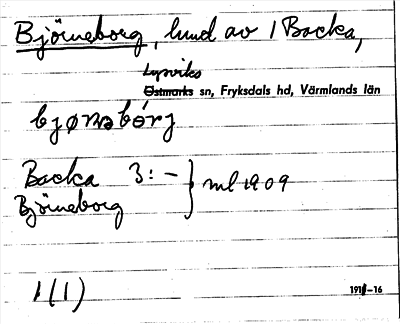 Björneborg, lund av 1 Backa,
Lysviks
Östmarks sn, Fryksdals hd, Värmlands län
bjønsbórj
Backa 3:- } ml 1909
Björneborg
1(1)
191 -16